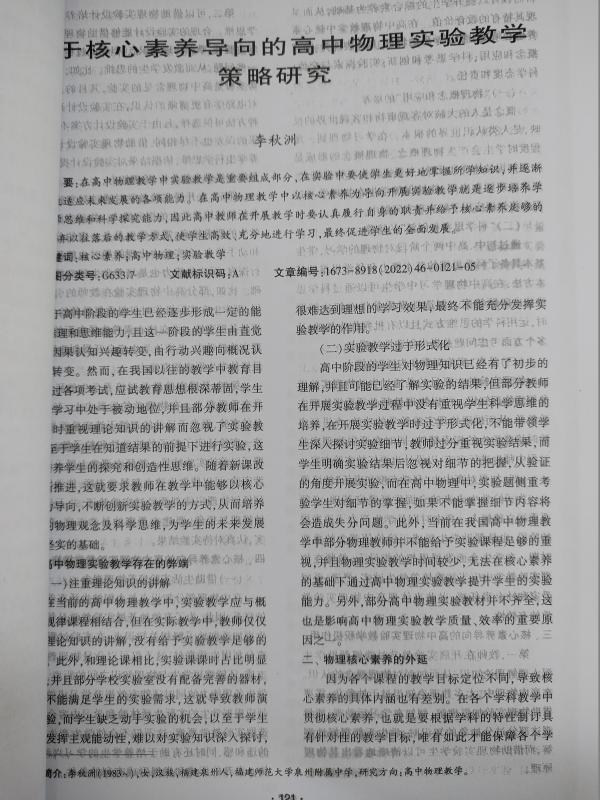 于核心素养导向的高中物理实验教学
策略研究
李秋洲
要:在高中物理教学中实验教学是重要组成部分,在实验中要使学生更好地掌握所学知识,并逐渐
适应未来发展的各项能力。在高中物理教学中以核心素养为导向开展实验教学就是逐步培养学
思维和科学探究能力,因此高中教师在开展教学时要认真履行自身的职责并给予核心素养足够的
弃以往落后的教学方式,使学生高效、充分地进行学习,最终促进学生的全面发展。
键词:核心素养;高中物理;实验教学
图分类号:G633.7 文献标识码:A 文章编号:1673-8918(2022)46-0121-05
于高中阶段的学生已经逐步形成一定的能
理和思维能力,且这一阶段的学生由直觉
因果认知兴趣转变,由行动兴趣向概况认
转变。然而,在我国以往的教学中教育目
过各项考试,应试教育思想根深蒂固,学生
学习中处于被动地位,并且部分教师在开
时重视理论知识的讲解而忽视了实验教
至于学生在知道结果的前提下进行实验,这
养学生的探究和创造性思维。随着新课改
推进,这就要求教师在教学中能够以核心
为导向,不断创新实验教学的方式,从而培养
的物理观念及科学思维,为学生的未来发展
坚实的基础。
高中物理实验教学存在的弊端
一)注重理论知识的讲解
在当前的高中物理教学中,实验教学应与概
规律课程相结合,但在实际教学中,教师仅仅
理论知识的讲解,没有给予实验教学足够的
。此外,和理论课相比,实验课课时占比明显
并且部分学校实验室没有配备完善的器材,
不能满足学生的实验需求,这就导致教师演
验,而学生缺乏动手实验的机会,以至于学生
发挥主观能动性,难以对实验知识深入探讨,
很难达到理想的学习效果,最终不能充分发挥实
验教学的作用。
(二)实验教学过于形式化
高中阶段的学生对物理知识已经有了初步的
理解,并且可能已经了解实验的结果,但部分教师
在开展实验教学过程中没有重视学生科学思维的
培养,在开展实验教学时过于形式化,不能带领学
生深入探讨实验细节,教师过分重视实验结果,而
学生明确实验结果后忽视对细节的把握,从验证
的角度开展实验,而在高中物理中,实验题侧重考
验学生对细节的掌握,如果不能掌握细节内容将
会造成失分问题。此外,当前在我国高中物理教
学中部分物理教师并不能给予实验课程足够的重
视,并且物理实验教学时间较少,无法在核心素养
的基础下通过高中物理实验教学提升学生的实验
能力。另外,部分高中物理实验教材并不齐全,这
也是影响高中物理实验教学质量、效率的重要原
因之一。
二、物理核心素养的外延
因为各个课程的教学目标定位不同,导致核
心素养的具体内涵也有差别。在各个学科教学中
贯彻核心素养,也就是要根据学科的特性制订具
有针对性的教学目标,唯有如此才能保障各个学
简介:李秋洲(1983~),女,汉族,福建泉州人,福建师范大学泉州附属中学,研究方向:高中物理教学。
·121·